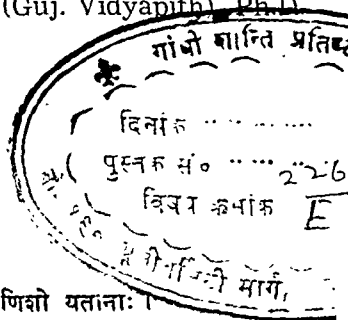 (Guj. Vidyapith), Ph.D.
गांधी शान्ति
दिनांक ..........
पुस्तक सं० ..... 226
विषय क्रमांक E
मार्ग,
णिशो यतानाः ।